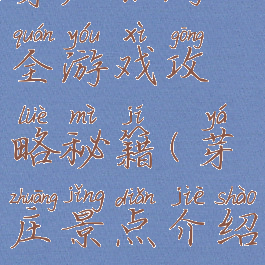 quán yóu xì gōng
全游戏攻
lüè mì jí yá
略秘藉(芽
zhuāng jǐng diǎn jiè shào
庄景点介绍